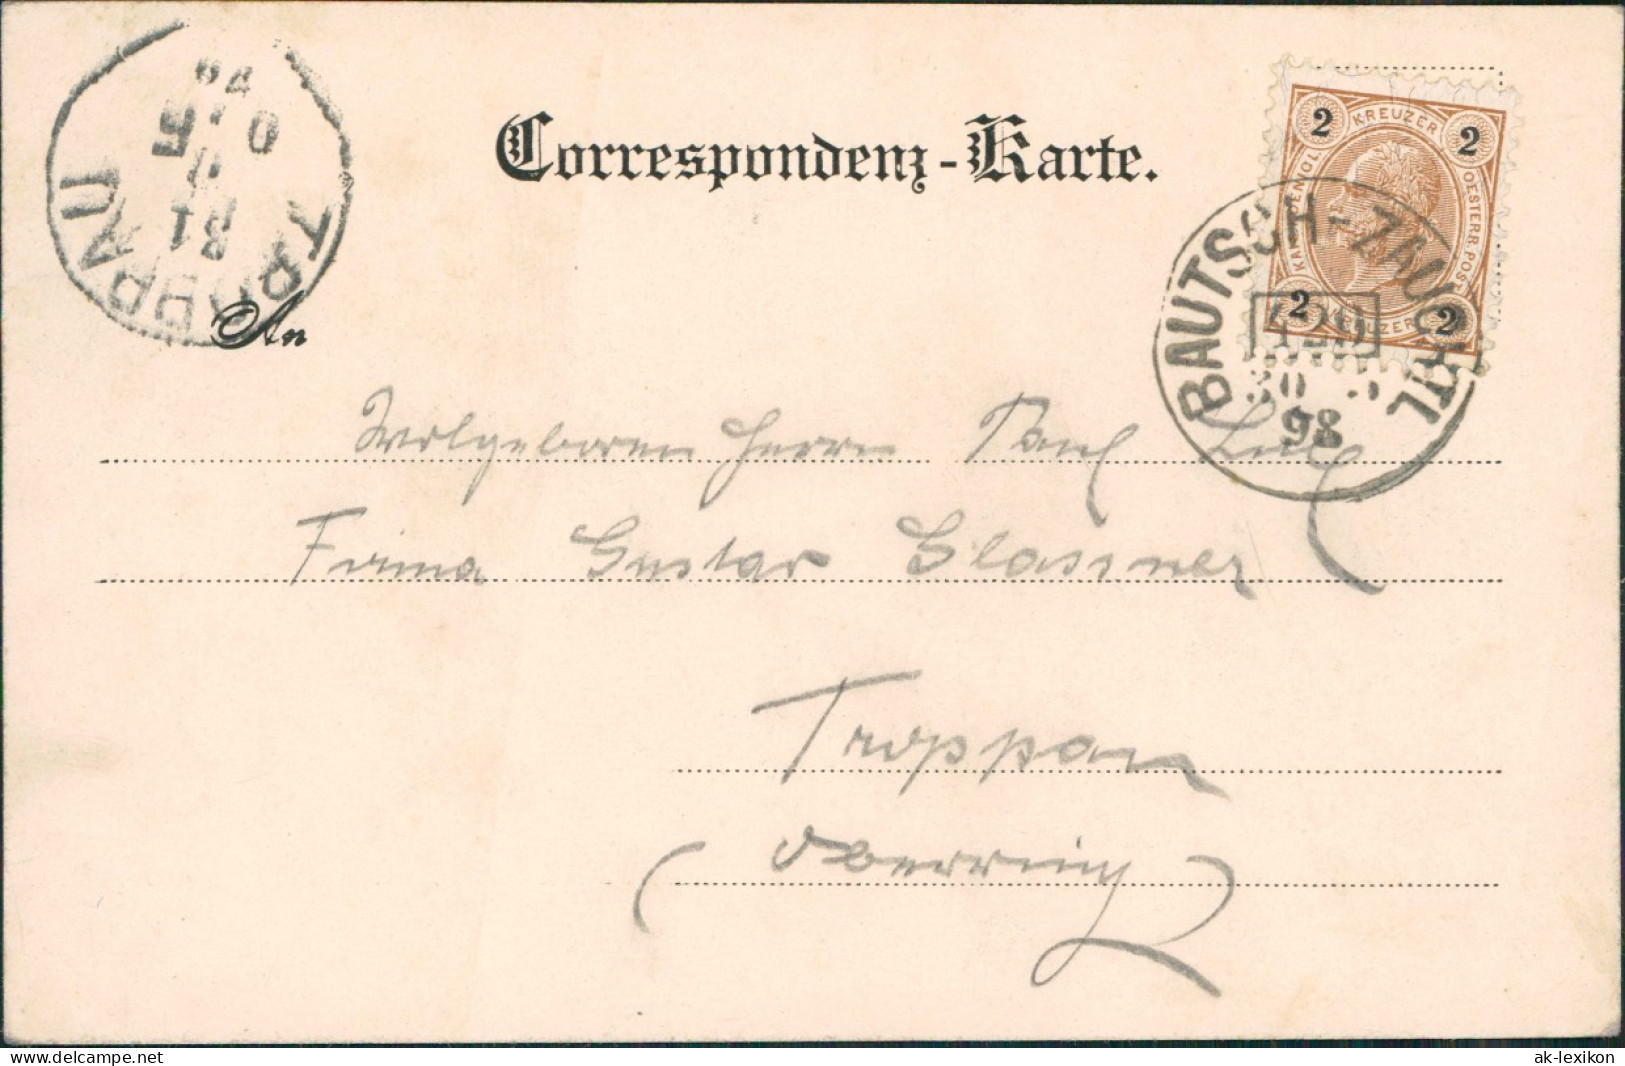 Correspondenz-Karte.
2 KREUZER 2
KAIS. KOENIGL. OESTERR. POST
2 KREUZER 2
BAUTSCH-ZAUCHTL
98
TROPPAU
31
An
Wolgeboren Herrn Paul
Firma Gustav Glassner
Troppau
(Oberring)
delcampe.net
ak-lexikon